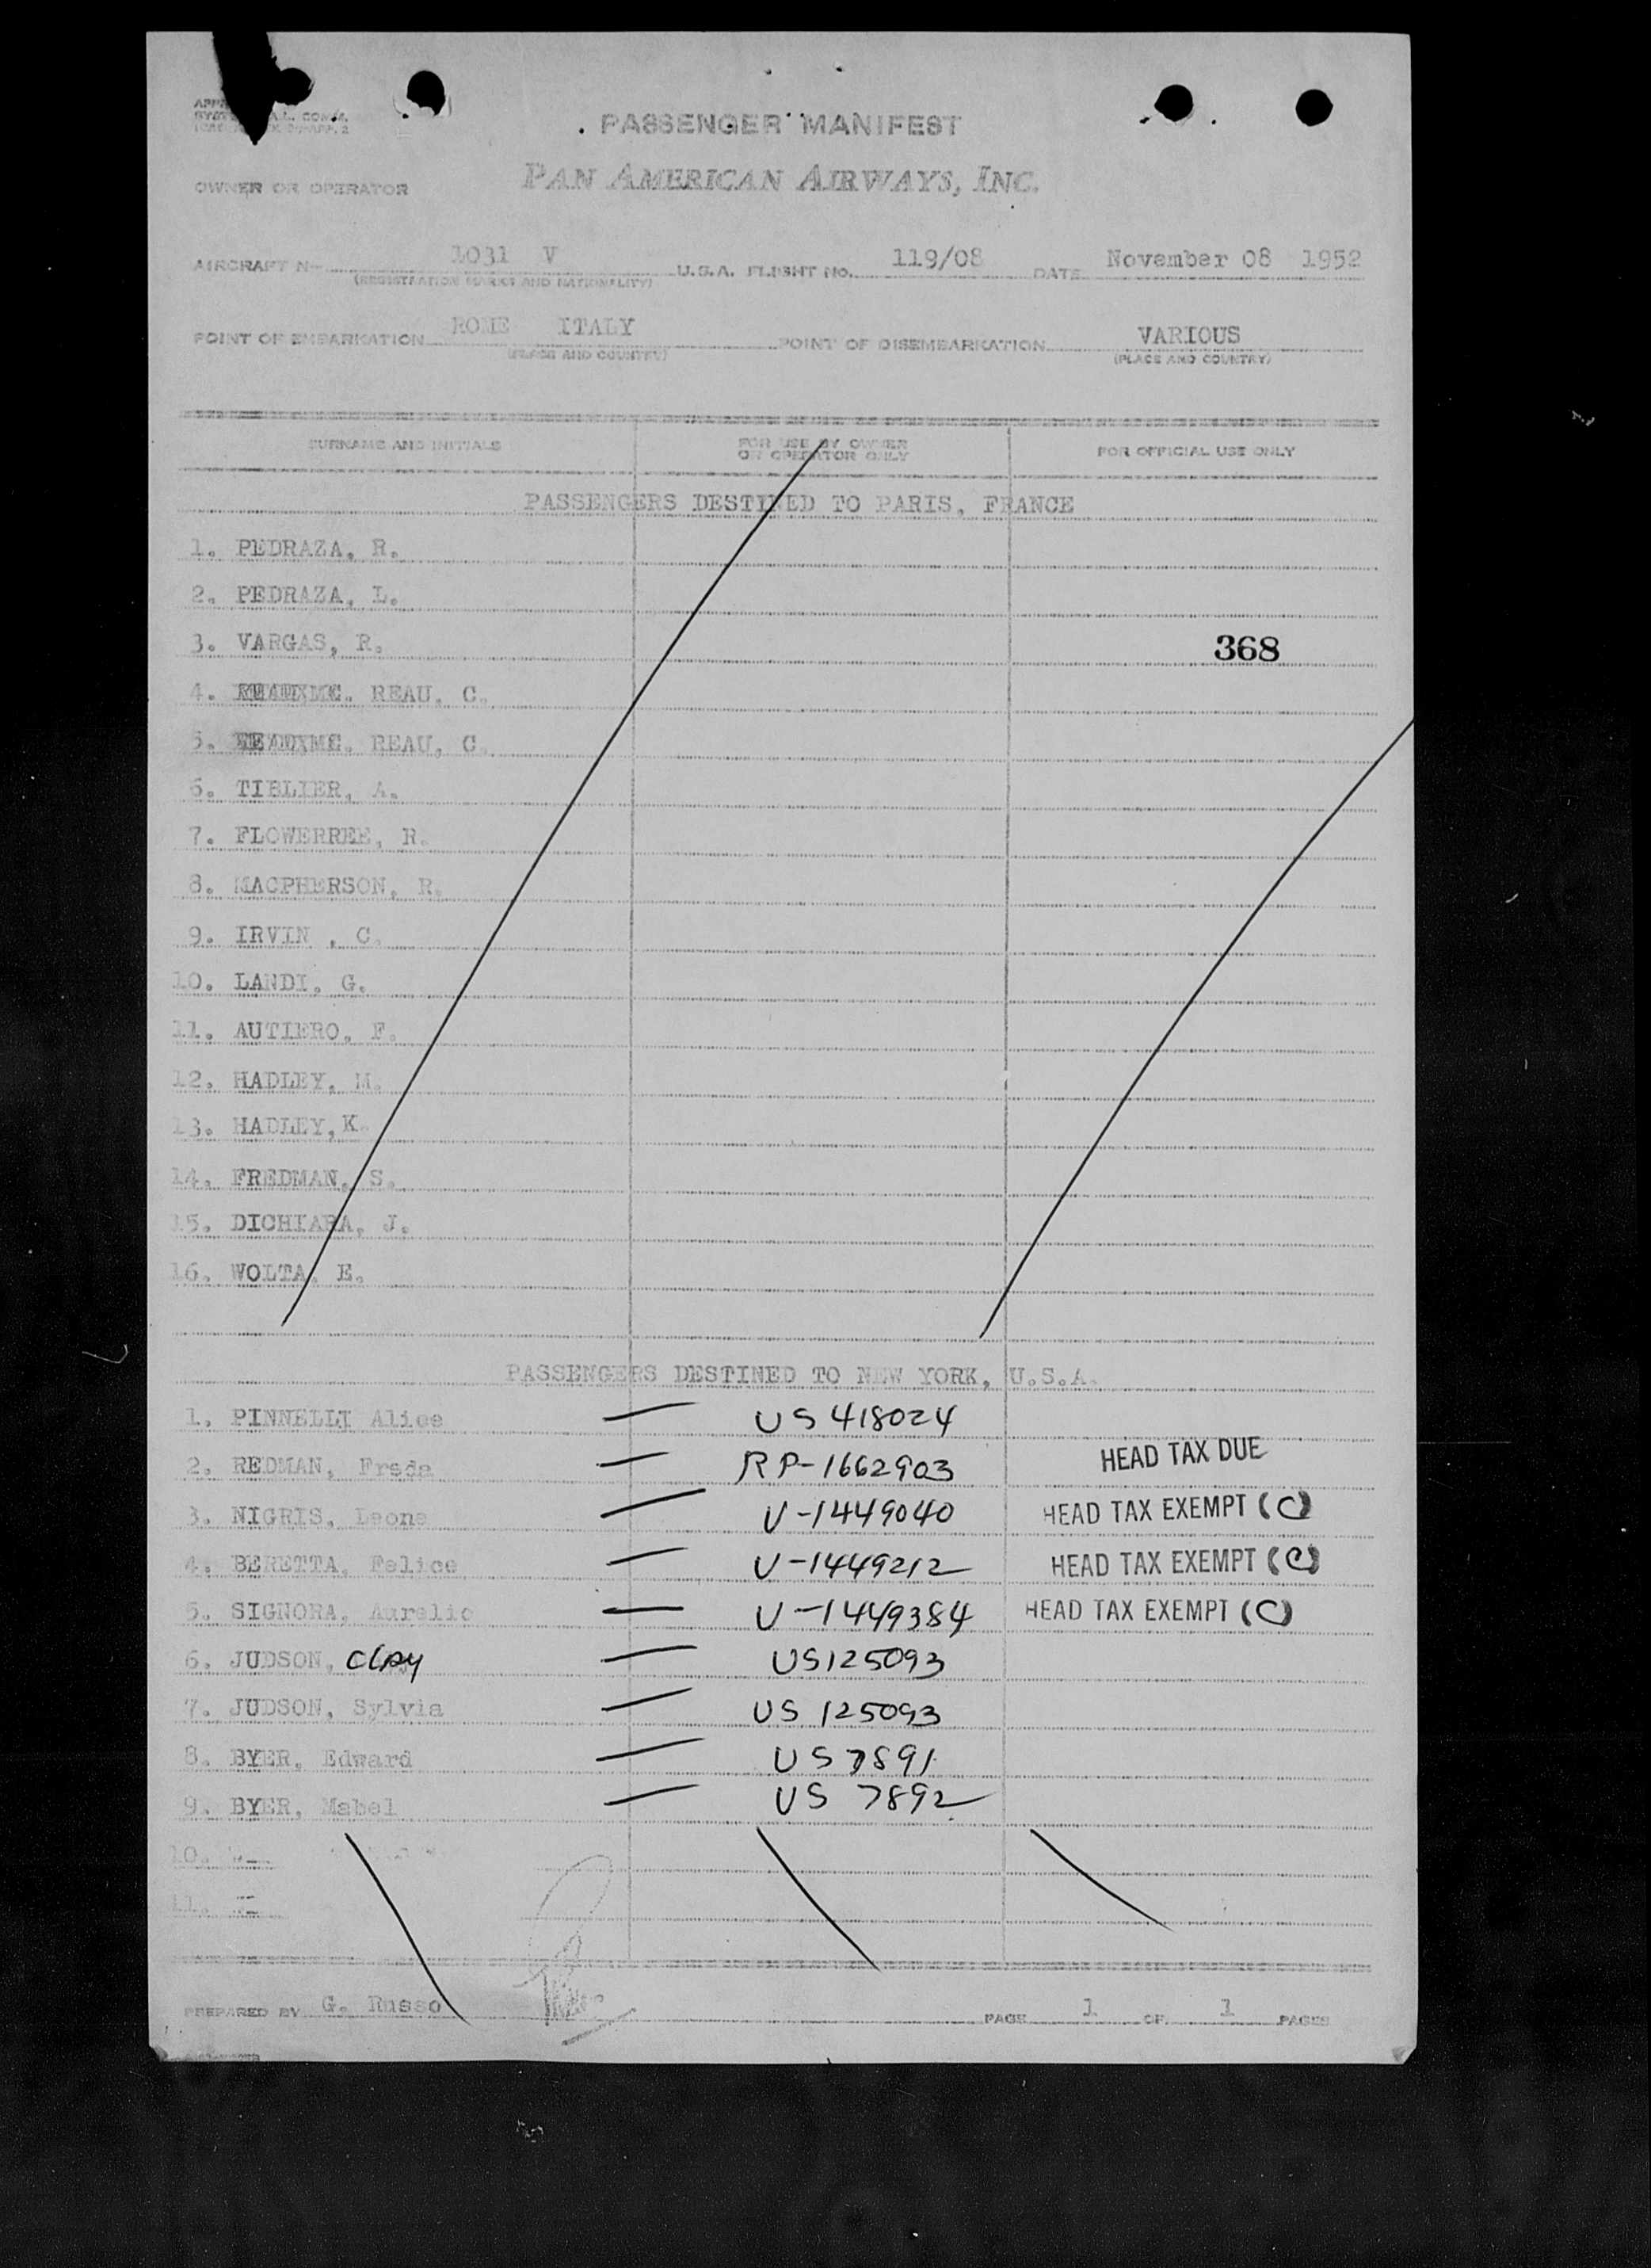 PASSENGER MANIFEST
OWNER OR OPERATOR PAN AMERICAN AIRWAYS, INC.
AIRCRAFT N 1031 V U.S.A. FLIGHT NO. 119/08 DATE November 08 1952
(REGISTRATION MARKS AND NATIONALITY)
POINT OF EMBARKATION ROME ITALY POINT OF DISEMBARKATION VARIOUS
(PLACE AND COUNTRY) (PLACE AND COUNTRY)
SURNAME AND INITIALS FOR USE BY OWNER OR OPERATOR ONLY FOR OFFICIAL USE ONLY
PASSENGERS DESTINED TO PARIS, FRANCE
1. PEDRAZA, R.
2. PEDRAZA, L.
3. VARGAS, R. 368
4. REAU, C.
5. REAU, C.
6. TIBLIER, A.
7. FLOWERREE, R.
8. MACPHERSON, R.
9. IRVIN , C.
10. LANDI, G.
11. AUTIERO, F.
12. HADLEY, M.
13. HADLEY, K.
14. FREDMAN, S.
15. DICHIARA, J.
16. WOLTA, E.
PASSENGERS DESTINED TO NEW YORK, U.S.A.
1. PINNELLI Alice — US 418024
2. REDMAN, Freda — RP-1662903 HEAD TAX DUE
3. NIGRIS, Leone — V-1449040 HEAD TAX EXEMPT (C)
4. BERETTA, Felice — V-1449212 HEAD TAX EXEMPT (C)
5. SIGNORA, Aurelio — V-1449384 HEAD TAX EXEMPT (C)
6. JUDSON, Clay — US125093
7. JUDSON, Sylvia — US 125093
8. BYER, Edward — US 7891
9. BYER, Mabel — US 7892
10.
11.
PREPARED BY G. Russo PAGE 1 OF 1 PAGES